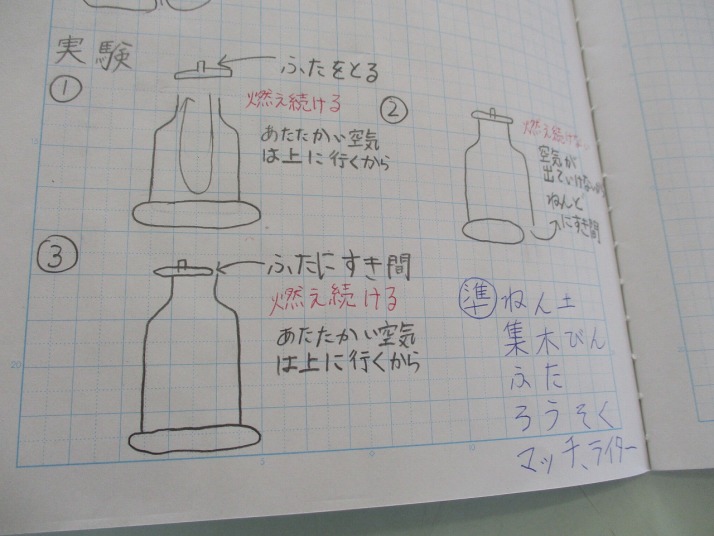 実験
①
ふたをとる
燃え続ける
あたたかい空気
は上に行くから
②
燃え続けない
空気が
出ていけないから
ねんど
にすき間
③
ふたにすき間
燃え続ける
あたたかい空気
は上に行くから
準 ねん土
集木びん
ふた
ろうそく
マッチ、ライター